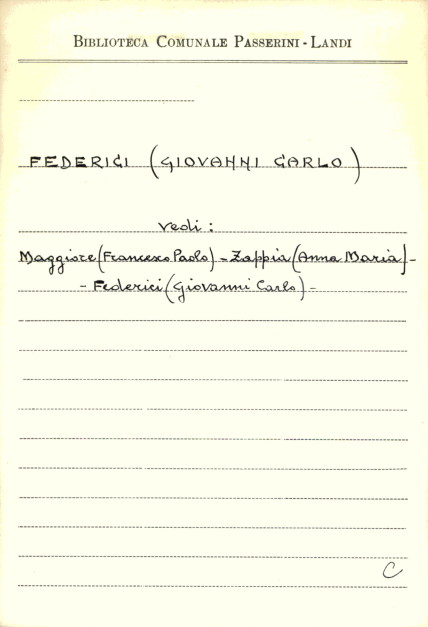 BIBLIOTECA COMUNALE PASSERINI - LANDI
FEDERICI (GIOVANNI CARLO)
vedi :
Maggiore (Francesco Paolo) - Zappia (Anna Maria) -
- Federici (Giovanni Carlo) -
C